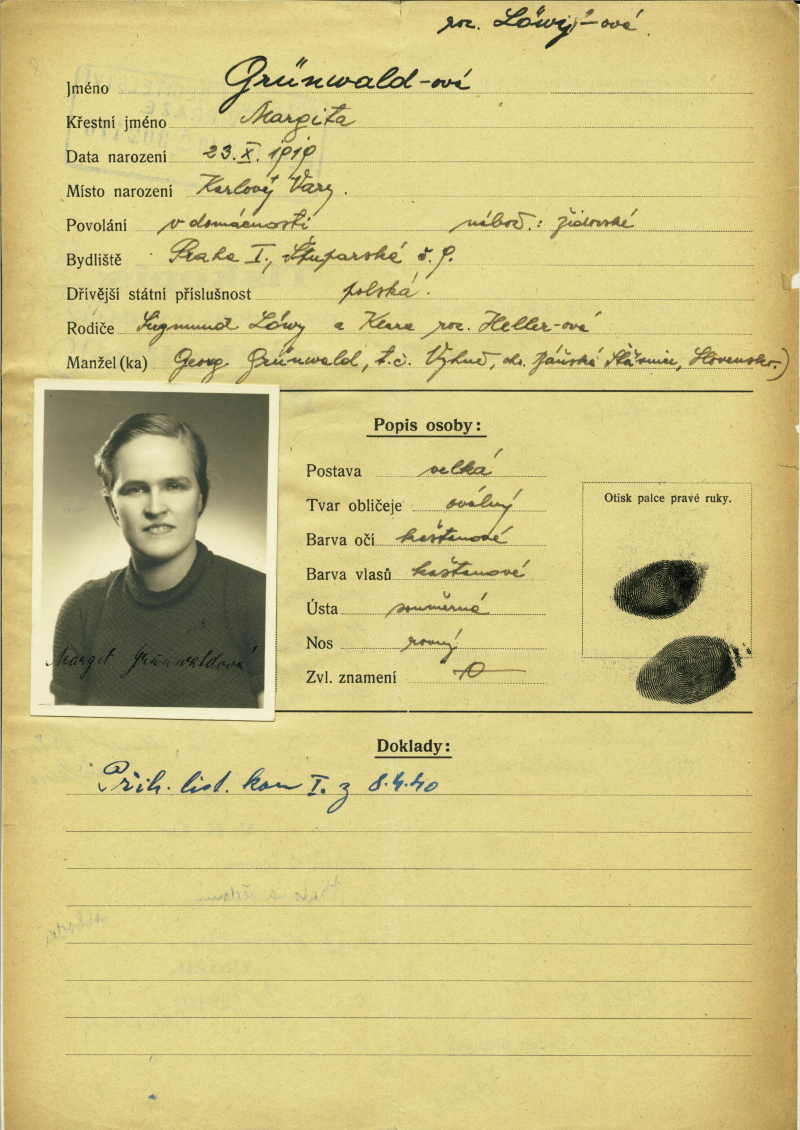 roz. Löwy-ová.
Jméno Grünwald-ová
Křestní jméno Margita
Data narození 23. X. 1919
Místo narození Karlový Vary.
Povolání v domácnosti nábož.: židovské
Bydliště Praha I., Štuparská č. 9.
Dřívější státní příslušnost polská.
Rodiče Sigmund Löwy a Klara roz. Heller-ová
Manžel(ka) Georg Grünwald, t.č. Vyhne, Slovensko.)
Popis osoby:
Postava velká
Tvar obličeje oválný
Otisk palce pravé ruky.
Barva očí kaštanové
Barva vlasů kaštanové
Ústa souměrná
Nos rovný
Zvl. znamení
Margit Grünwaldová
Doklady:
Přih. list. kom I. z 8.4.40